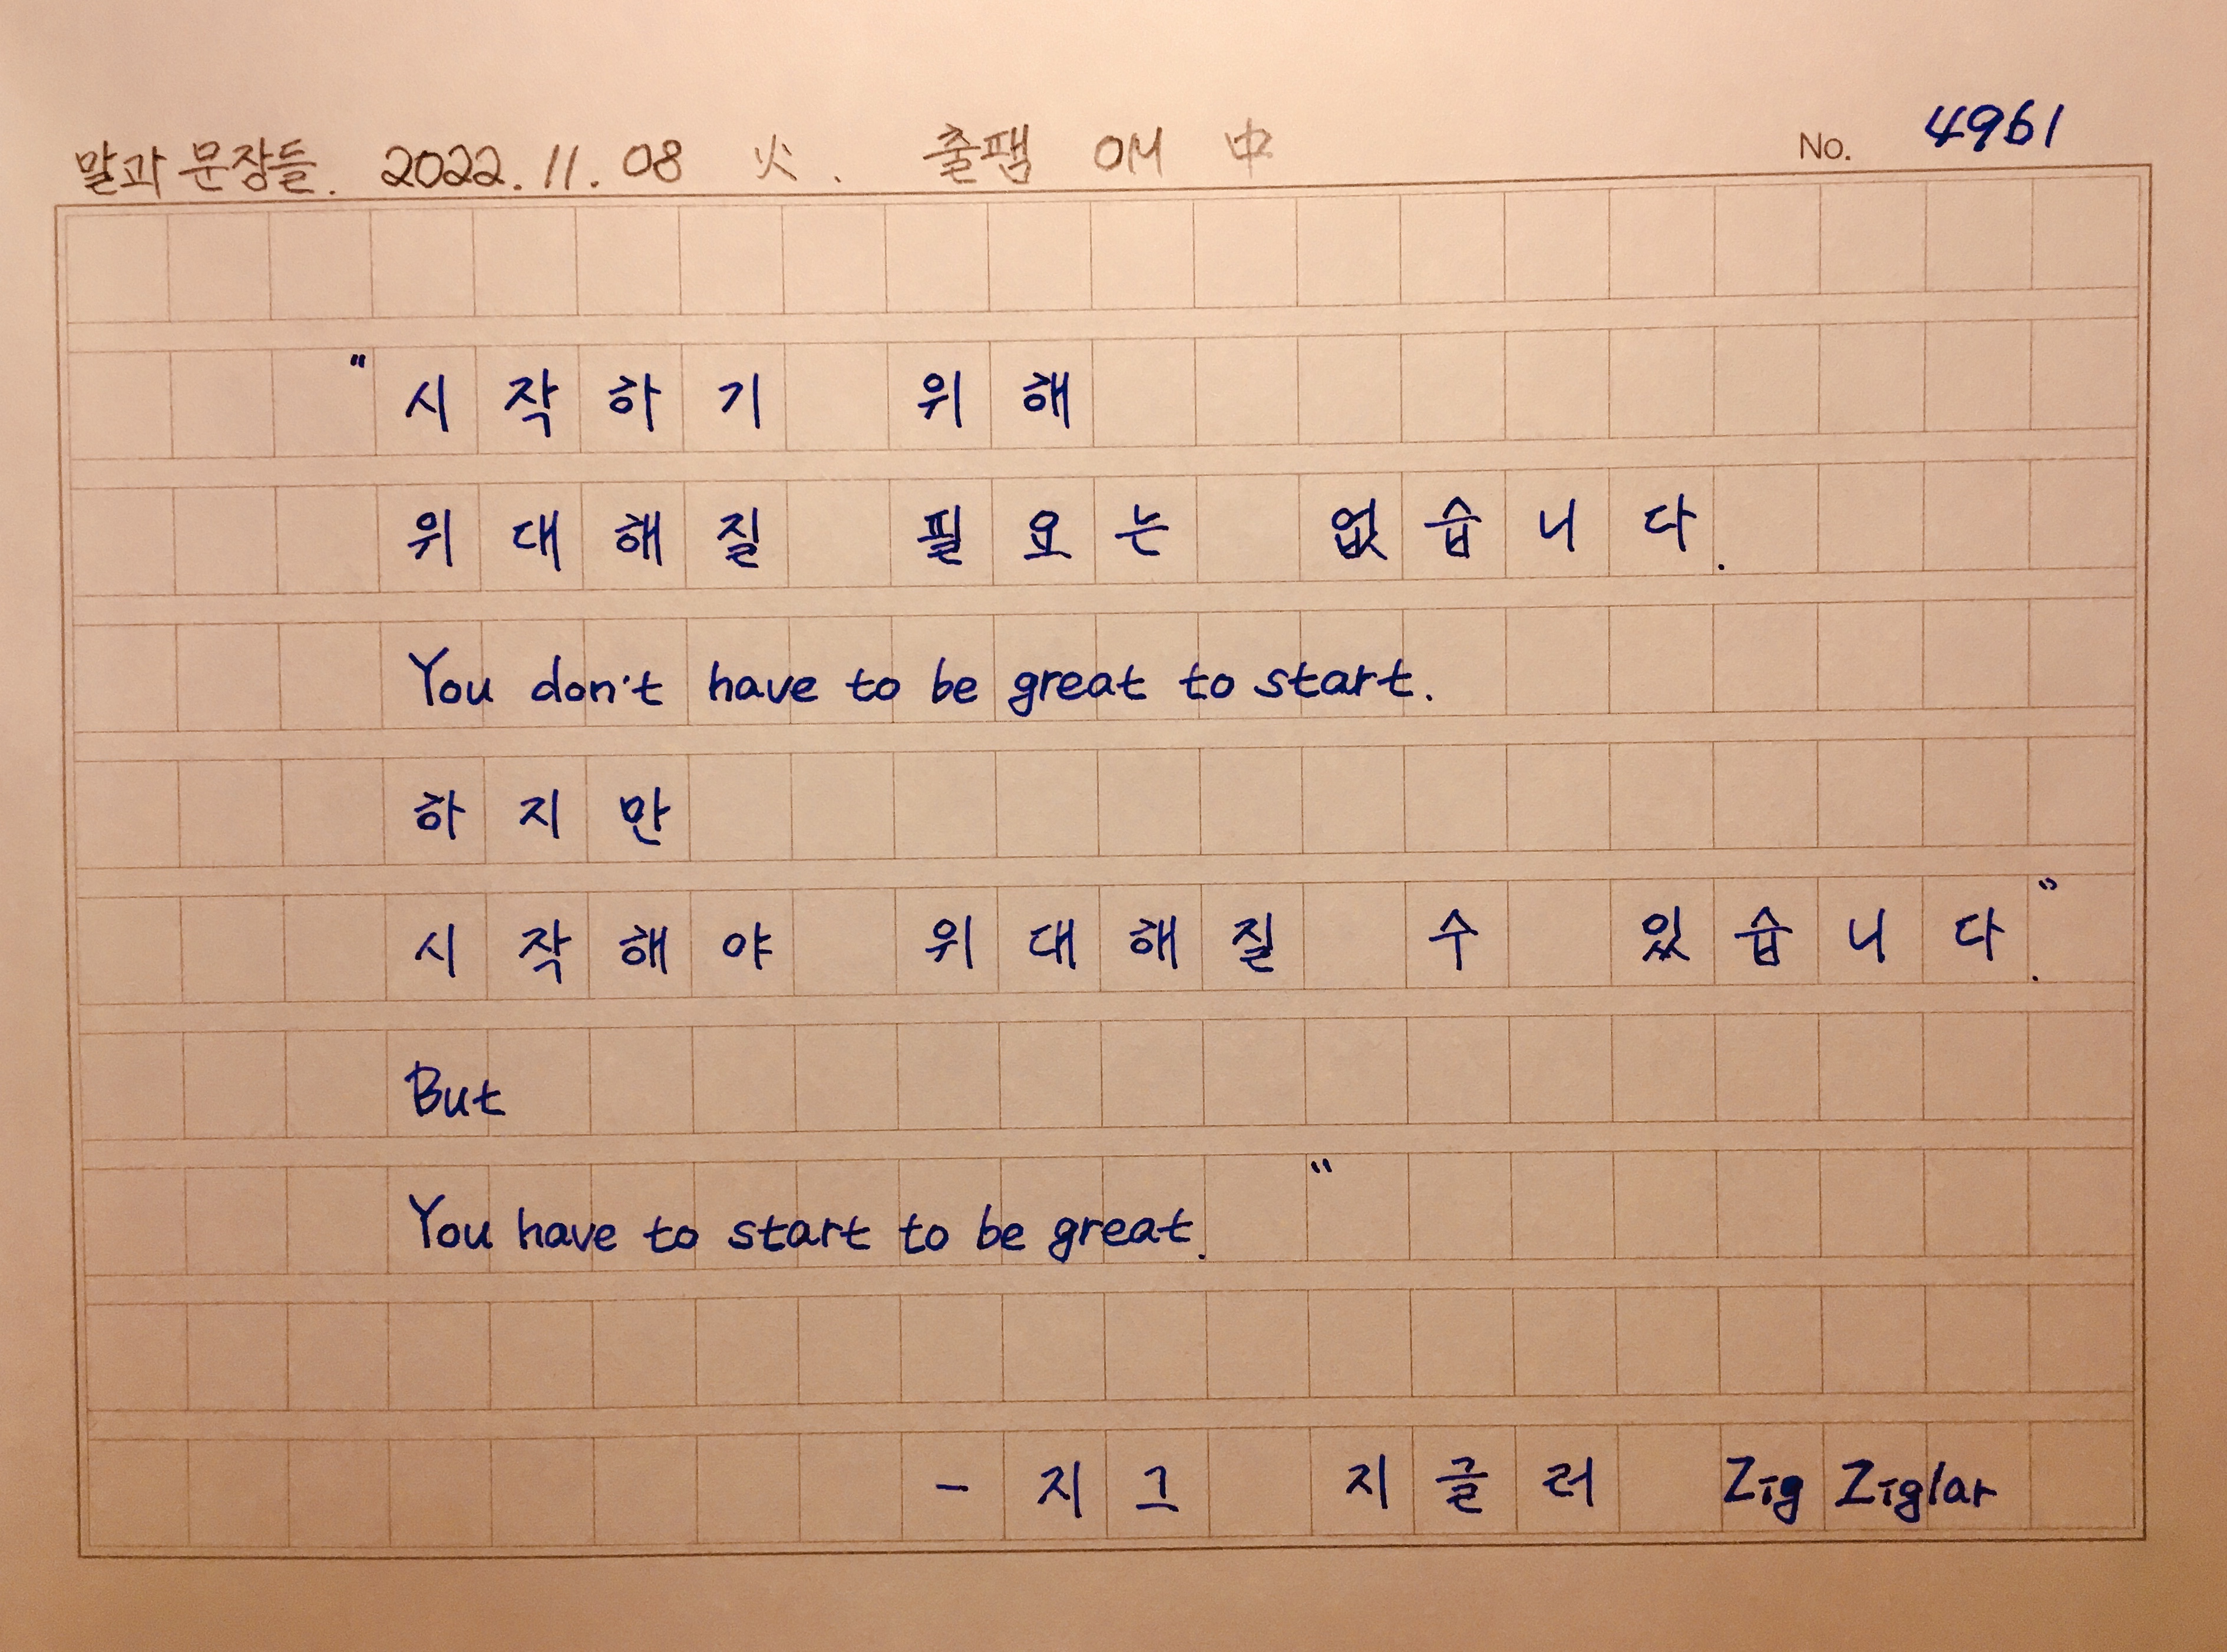 말과 문장들. 2022. 11. 08 火. 출팸 OM 中 No. 4961
"시작하기 위해
위대해질 필요는 없습니다.
You don't have to be great to start.
하지만
시작해야 위대해질 수 있습니다."
But
You have to start to be great."
- 지그 지글러 Zig Ziglar